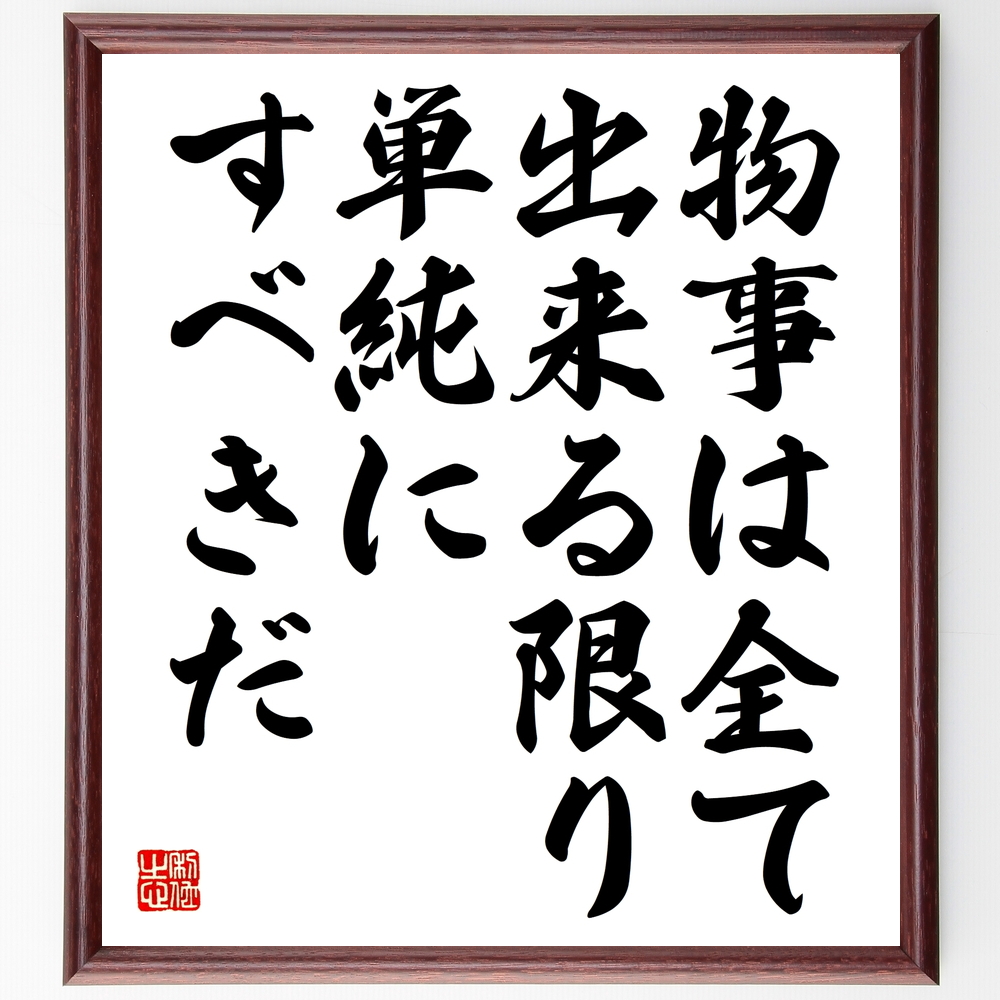 物事は全て
出来る限り
単純に
すべきだ